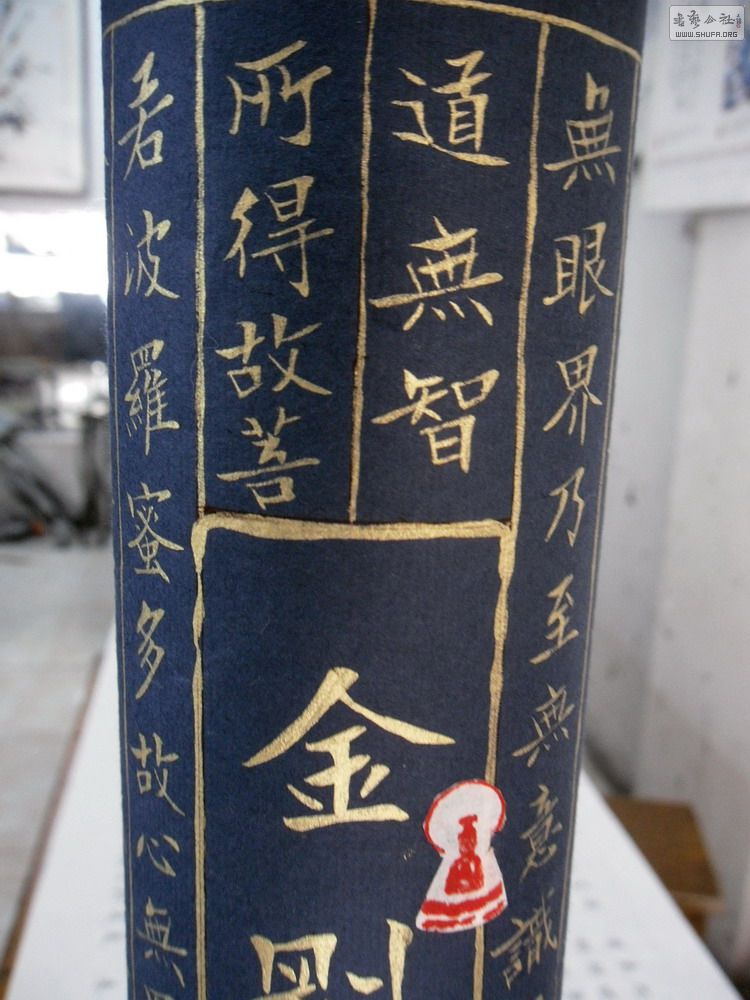 無眼界乃至無意識
道無智
所得故菩
若波羅蜜多故心無
金剛
書藝公社
WWW.SHUFA.ORG